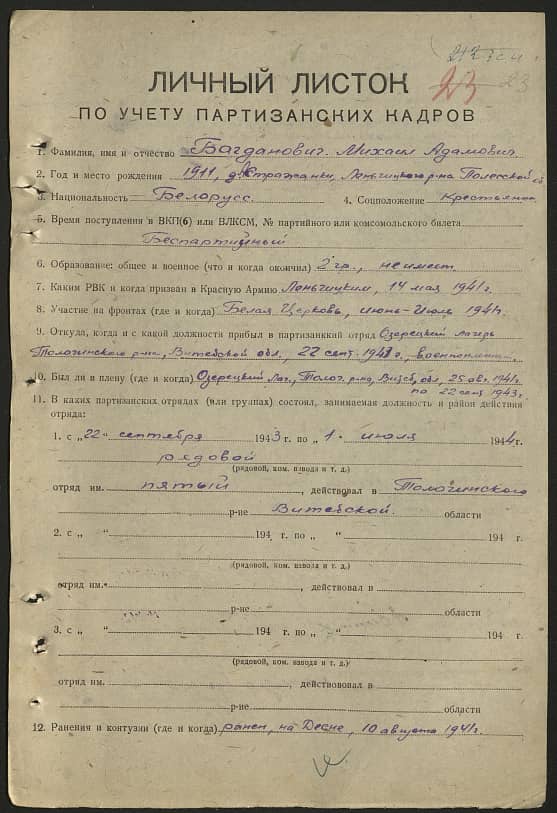 212
23 23
ЛИЧНЫЙ ЛИСТОК
ПО УЧЕТУ ПАРТИЗАНСКИХ КАДРОВ
1. Фамилия, имя и отчество Багданович Михаил Адамович
2. Год и место рождения 1911, д. Стражанки, Леньчицкого р-на Полесской об
3. Национальность Белорусс. 4. Соцположение Крестьянин
5. Время поступления в ВКП(б) или ВЛКСМ, № партийного или комсомольского билета
Беспартийный
6. Образование: общее и военное (что и когда окончил) 2 гр., не имеет.
7. Каким РВК и когда призван в Красную Армию Леньчицким, 14 мая 1941г.
8. Участие на фронтах (где и когда) Белая Церковь, июнь-июль 1941г.
9. Откуда, когда и с какой должности прибыл в партизанский отряд Озерецкий лагерь
Толочинского р-на, Витебской обл., 22 сент. 1943г., военнопленный
10. Был ли в плену (где и когда) Озерецкий лаг., Толоч. р-на, Витеб. обл., 25 авг. 1941г.
по 22 сент 1943г.
11. В каких партизанских отрядах (или группах) состоял, занимаемая должность и район действия
отряда:
1. с „22“ сентября 1943 г. по „1“ июля 1944 г.
рядовой
(рядовой, ком. взвода и т. д.)
отряд им. пятый, действовал в Толочинского
р-не Витебской области
2. с „ “ 194 г. по „ “ 194 г.
(рядовой, ком. взвода и т. д.)
отряд им. , действовал в
р-не области
3. с „ “ 194 г. по „ “ 194 г.
(рядовой, ком. взвода и т. д.)
отряд им. , действовал в
р-не области
12. Ранения и контузии (где и когда) ранен, на Десне, 10 августа 1941г.